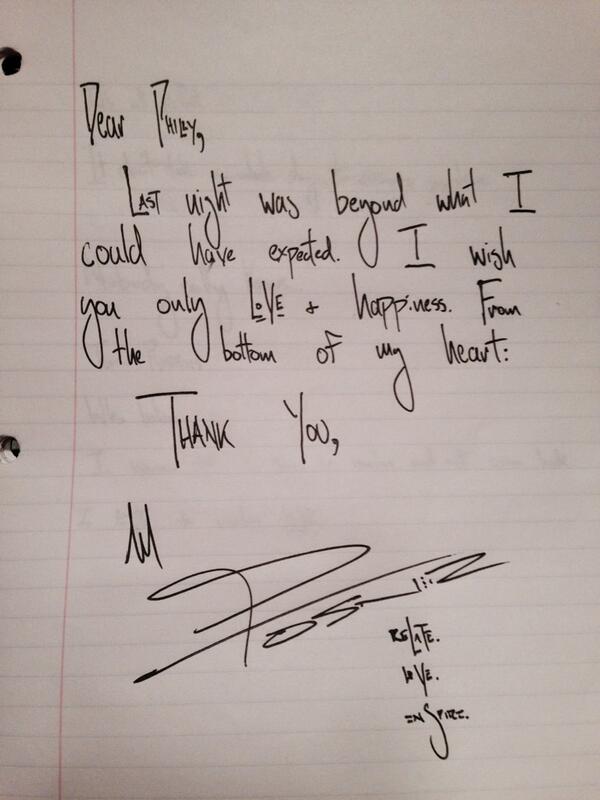 Dear Philey,
Last night was beyond what I
could have expected. I wish
you only LOVE & happiness. From
the bottom of my heart:
THANK YOU,
M
RELATE.
LOVE.
ENSPIRE.